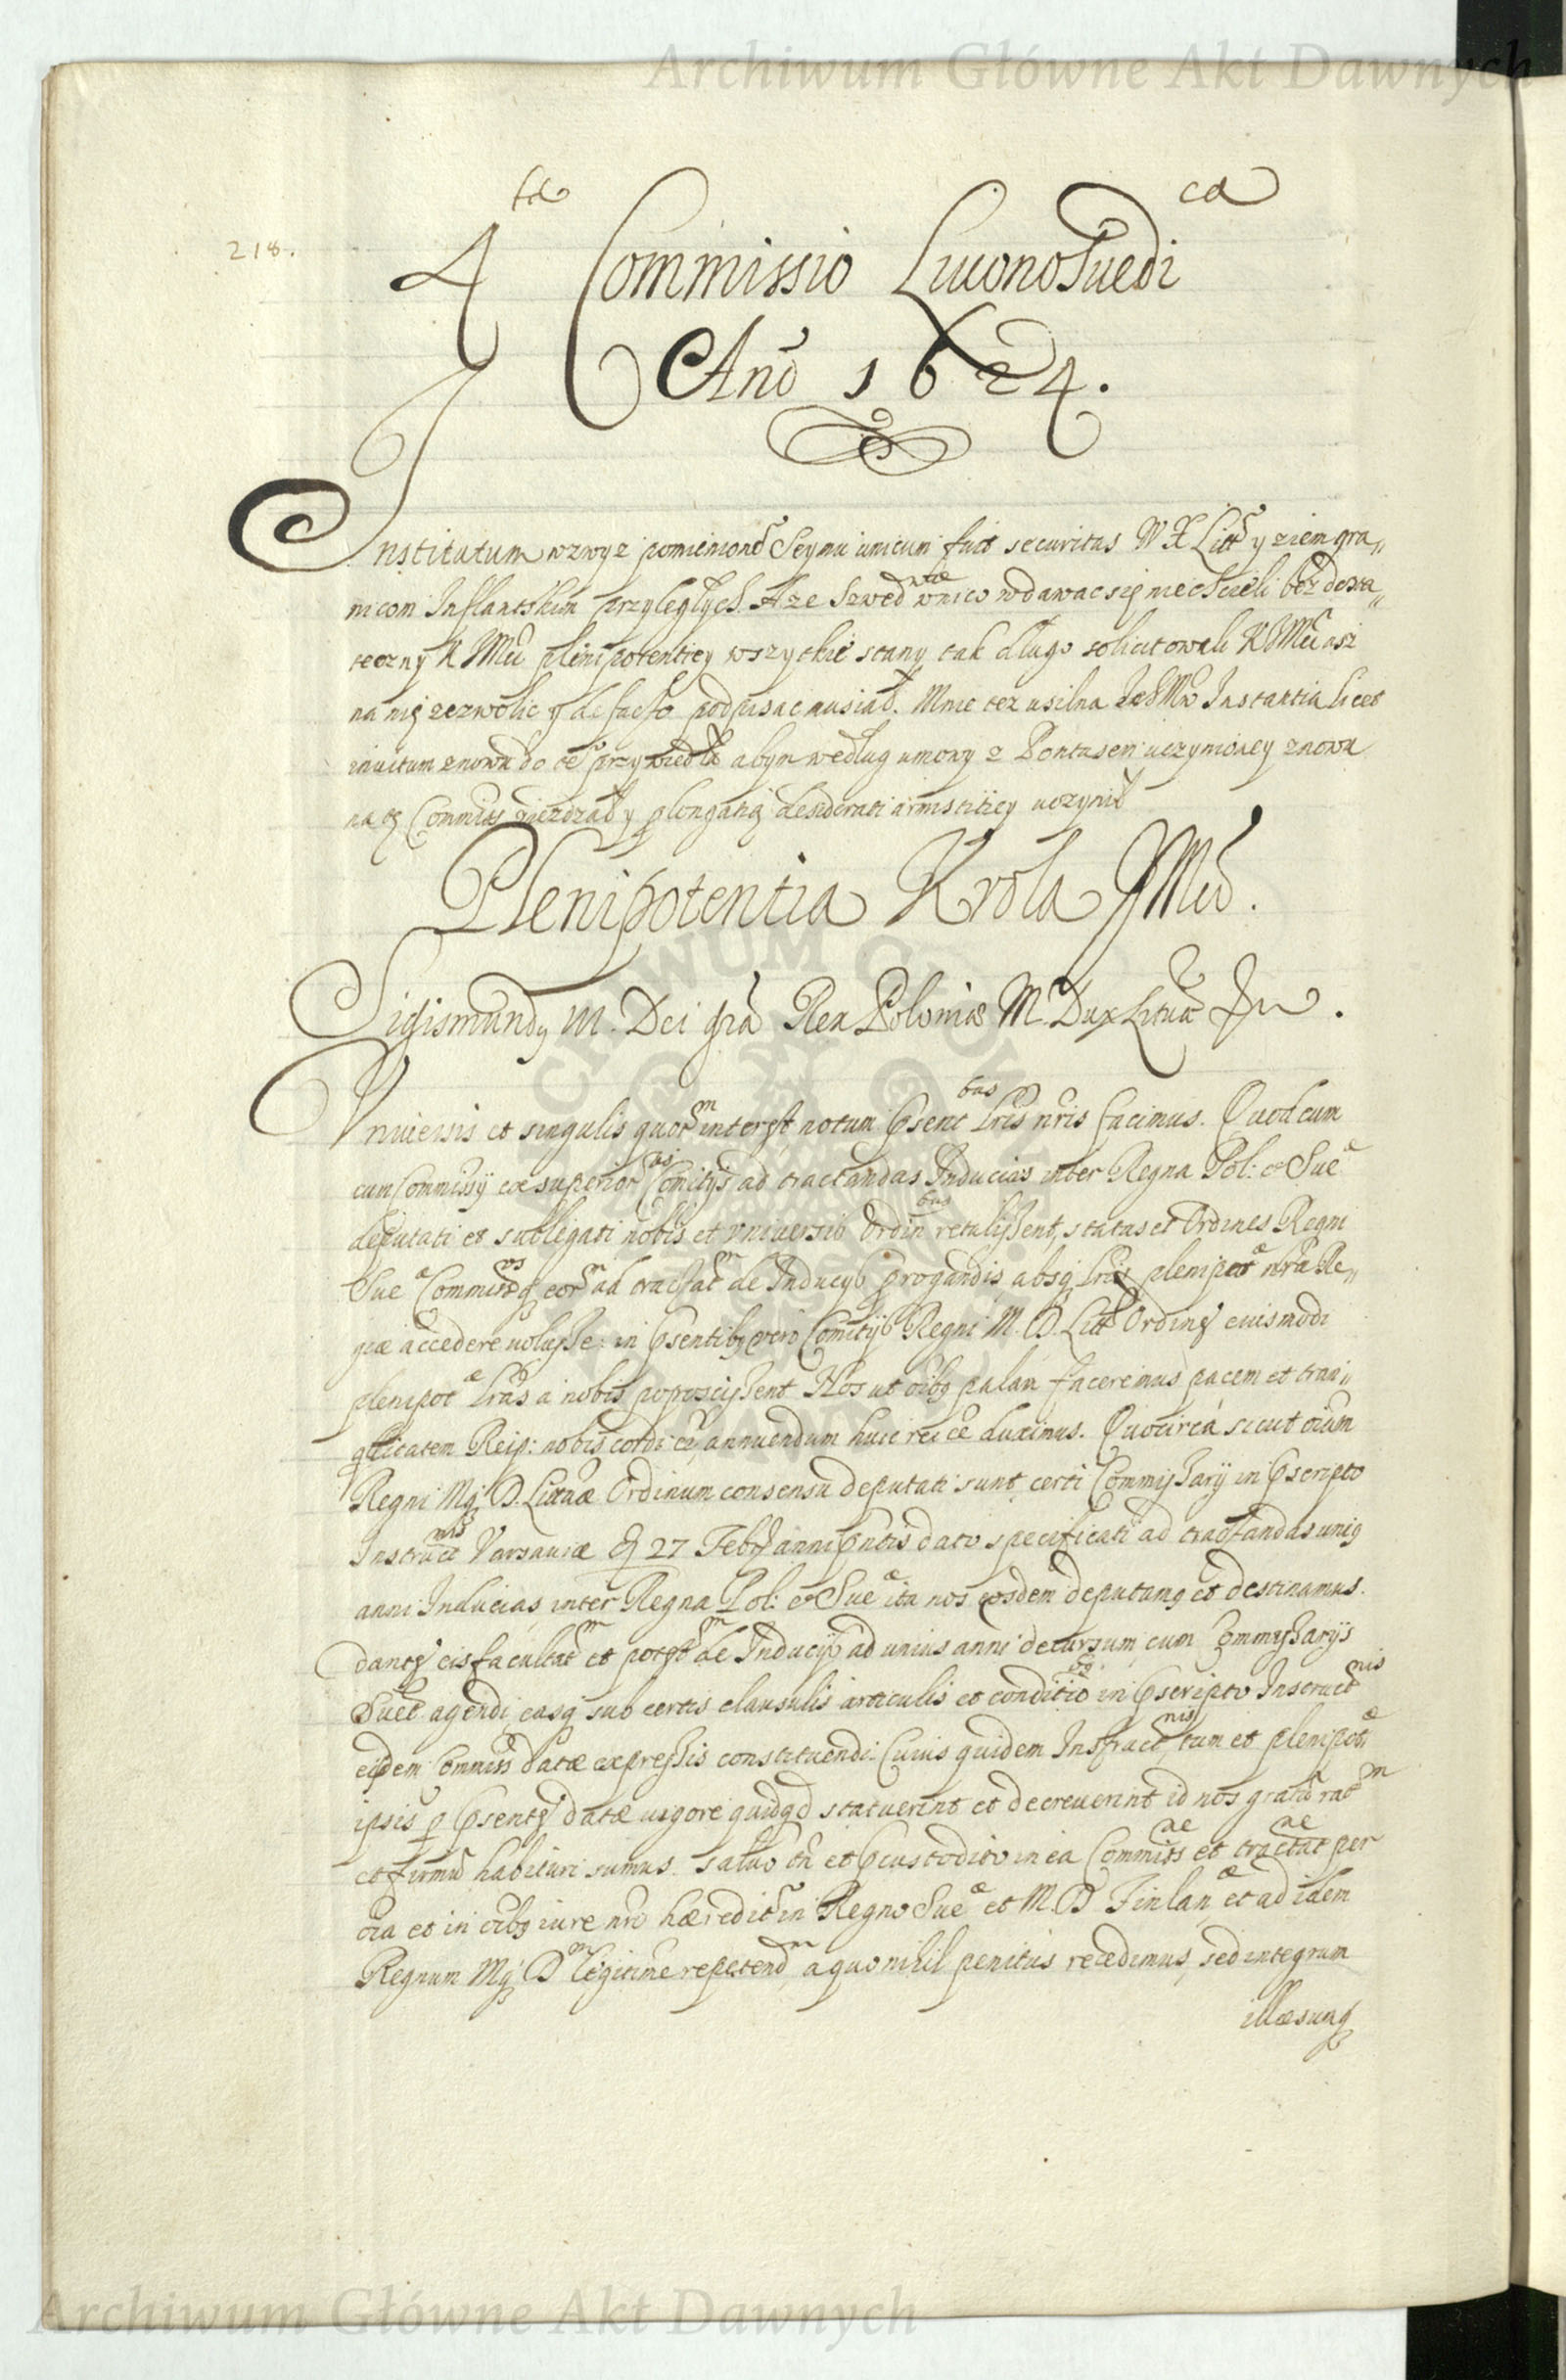 Archiwum Główne Akt Dawnych
218.
4ta Commissio LiuonoSuedica
Año 1624.
Institutum wzwyz pomienioně Seymu unicum fuit securitas W X Litt y ziem gra„
nicom Inflantskim przyległych. A ze Szwed wnico wdawac się nie chcieli bez dosta„
teczny K Mci plenipotentiey wszytkie stany tak długo solicitowali K J Mci asz
na nię zezwolic y de facto podpisac musiał. Mnie tez usilna Instantia licet
inuitum znowu do te przywiedła abym według umowy z Pontusem uczynioney znowu
na tę Commiss ziezdzał y plongatię desiderati armistitiey uczynił
Plenipotentia Krola JMci.
Sigismundus III. Dei gra Rex Poloniæ M. Dux Lituæ
Vniuersis et singulis quor interest notum psentbus lris nris facimus. Quod cum
cum Commissij ex superiorbus Comitijs ad tractandas Inducias inter Regna Pol: et Sueæ
deputati et sublegati nobis et vniuersis Ordinbus retulissent, status et Ordines Regni
Sueæ Commiss eorm ad tractatm de Inducijs progandis absq lris plenipotæ nra Re„
giæ accedere noluisse: in psentibus vero Comitijs Regni M. D. Litt Ordines eiusmodi
plenipotæ lras a nobis poposcissent Nos ut oibus palam faceremus pacem et tran„
qlitatem Reip: nobis cordi ee, annuendum huic rei ee duximus. Quocirca sicut oium
Regni Mq D. Lituæ Ordinum consensu deputati sunt certi Commissarij in pscripto
Instructnis Varsauiæ 27 Febr anni pntis dato specificati ad tractandas unius
anni Inducias inter Regna Pol: et Sueæ ita nos eosdem deputamus et destinamus.
dantes eis facultatm et potestm de Inducijs ad unius anni decursum, cum Commissarijs
Suet agendi, easq sub certis clausulis articulis et conditiobus in pscripto Instructnis
eisdem Commiss datæ expressis constituendi. Cuius quidem Instructnis, tum et plenipotæ
ipsis p psentes datæ vigore quidqd statuerint et decreuerint id nos gratu ratm
et firmu habituri sumus. saluo tn et pcustodito in ea Commissne et tractatne per
oia et in oibus iure nro hæredit in Regno Sueæ et M. D Finlanæ et ad idem
Regnum Mq Dm legitime repetendm, a quo nihil penitus recedimus, sed integrum
illæsumq
Archiwum Główne Akt Dawnych